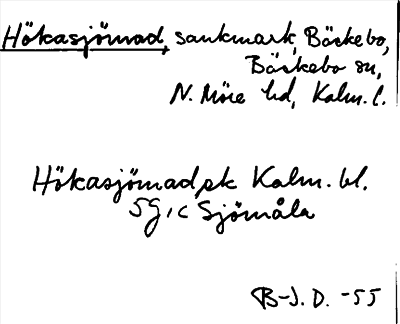 Hökasjömad, sankmark, Bäckebo,
Bäckebo sn,
N. Möre hd, Kalm. l.
Hökasjömad, ek Kalm. bl.
5G, c Sjömåla
B-J. D. -55